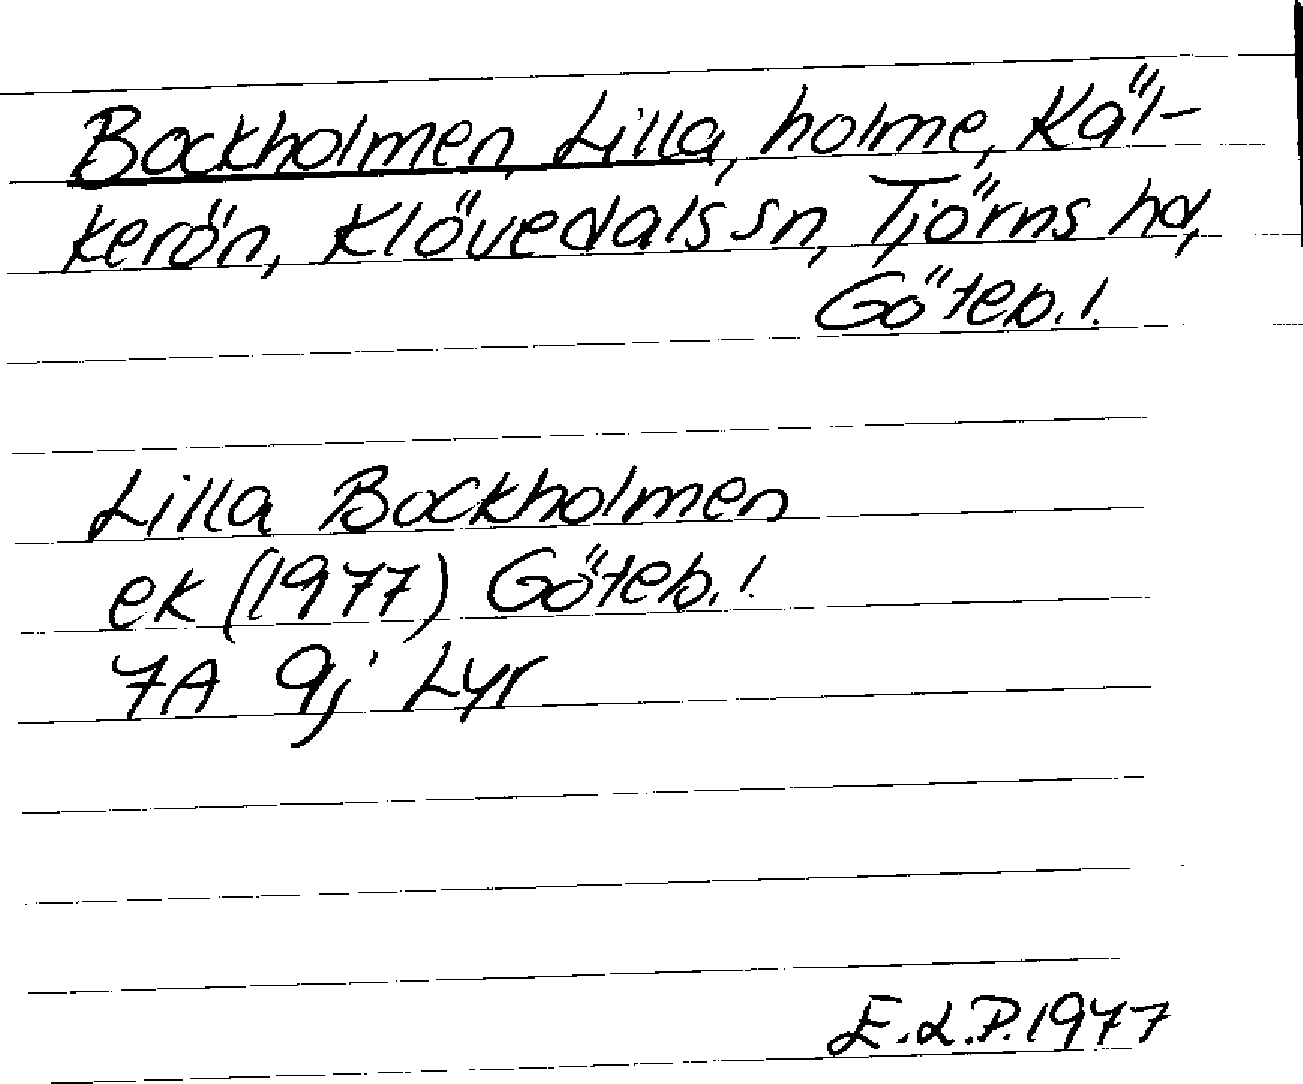 Bockholmen, Lilla, holme, Käl-
kerön, Klövedals sn, Tjörns hd,
Göteb. l.
Lilla Bockholmen
ek (1977) Göteb. l
7A 9j Lyr
E.L.P. 1977